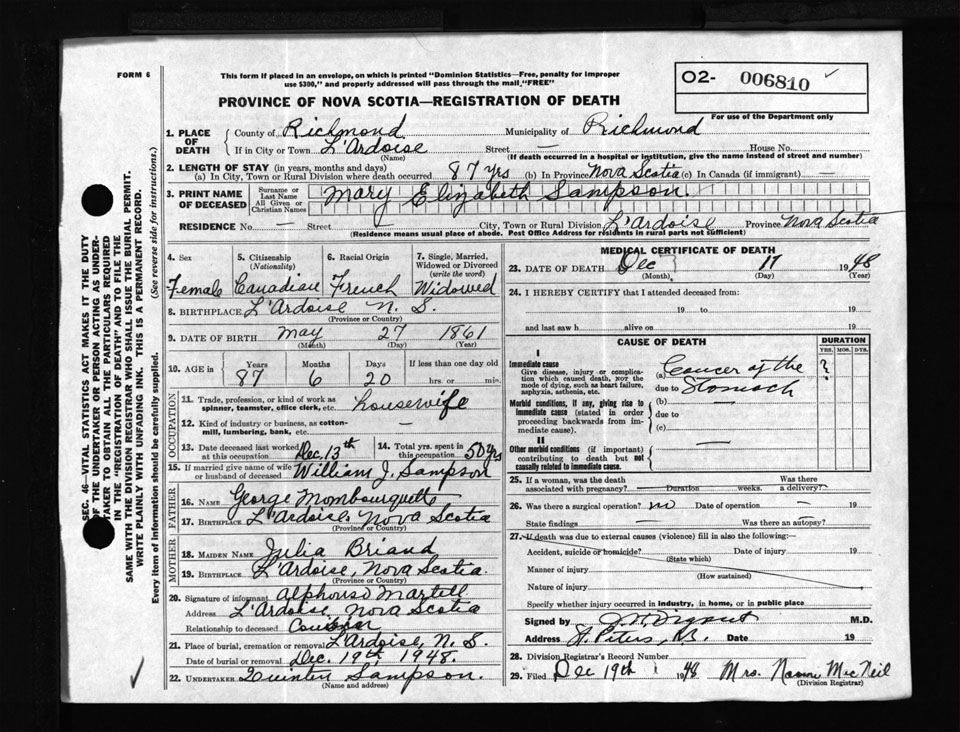 FORM 6
This form if placed in an envelope, on which is printed "Dominion Statistics—Free, penalty for improper
use $300," and properly addressed will pass through the mail "FREE"
O2- 006810 ✓
For use of the Department only
PROVINCE OF NOVA SCOTIA—REGISTRATION OF DEATH
SEC. 46—VITAL STATISTICS ACT MAKES IT THE DUTY
OF THE UNDERTAKER OR PERSON ACTING AS UNDER-
TAKER TO OBTAIN ALL THE PARTICULARS REQUIRED
IN THE "REGISTRATION OF DEATH" AND TO FILE THE
SAME WITH THE DIVISION REGISTRAR WHO SHALL ISSUE THE BURIAL PERMIT.
WRITE PLAINLY WITH UNFADING INK. THIS IS A PERMANENT RECORD.
Every item of Information should be carefully supplied. (See reverse side for instructions.)
1. PLACE OF DEATH
County of Richmond Municipality of Richmond
If in City or Town L'Ardoise Street — House No.
(Name) (If death occurred in a hospital or institution, give the name instead of street and number)
2. LENGTH OF STAY (in years, months and days)
(a) In City, Town or Rural Division where death occurred 87 yrs (b) In Province Nova Scotia (c) In Canada (if immigrant) —
3. PRINT NAME OF DECEASED
Surname or Last Name
All Given or Christian Names
Mary Elizabeth Sampson.
RESIDENCE No. — Street City, Town or Rural Division L'Ardoise Province Nova Scotia
(Residence means usual place of abode. Post Office Address for residents in rural parts not sufficient)
4. Sex 5. Citizenship (Nationality) 6. Racial Origin 7. Single, Married, Widowed or Divorced (write the word)
Female Canadian French Widowed
8. BIRTHPLACE L'Ardoise N. S.
(Province or Country)
9. DATE OF BIRTH May 27 1861
(Month) (Day) (Year)
10. AGE in Years Months Days If less than one day old
87 6 20 hrs. or min.
OCCUPATION
11. Trade, profession, or kind of work as
spinner, teamster, office clerk, etc. housewife
12. Kind of industry or business, as cotton-
mill, lumbering, bank, etc. —
13. Date deceased last worked
at this occupation Dec. 13th
14. Total yrs. spent in
this occupation 50 yrs
15. If married give name of wife
or husband of deceased William J. Sampson
FATHER
16. NAME George Mombourquette
17. BIRTHPLACE L'Ardoise, Nova Scotia
(Province or Country)
MOTHER
18. MAIDEN NAME Julia Briand
19. BIRTHPLACE L'Ardoise, Nova Scotia.
(Province or Country)
20. Signature of informant Alphonse Martell
Address L'Ardoise, Nova Scotia
Relationship to deceased
21. Place of burial, cremation or removal L'Ardoise, N. S.
Date of burial or removal Dec. 19th 1948.
22. UNDERTAKER Quinten Sampson.
(Name and address)
MEDICAL CERTIFICATE OF DEATH
23. DATE OF DEATH Dec 17 1948
(Month) (Day) (Year)
24. I HEREBY CERTIFY that I attended deceased from:
19 to 19
and last saw h alive on 19
CAUSE OF DEATH
DURATION
YRS. MOS. DYS.
I
Immediate cause
Give disease, injury or complica-
tion which caused death, NOT the
mode of dying, such as heart failure,
asphyxia, asthenia, etc.
(a) Cancer of the ?
due to Stomach
Morbid conditions, if any, giving rise to
Immediate cause (stated in order
proceeding backwards from im-
mediate cause).
(b) —
due to
(c)
II
Other morbid conditions (if important)
contributing to death but not
causally related to immediate cause. —
25. If a woman, was the death
associated with pregnancy? Duration weeks. Was there a delivery?
26. Was there a surgical operation? no Date of operation —
State findings — Was there an autopsy?
27. If death was due to external causes (violence) fill in also the following:—
Accident, suicide or homicide? Date of injury 19
(State which)
Manner of injury
(How sustained)
Nature of injury
Specify whether injury occurred in industry, in home, or in public place
Signed by M.D.
Address St. Peters, Date 19
28. Division Registrar's Record Number
29. Filed Dec 19th 1948 Mrs. Naomi MacNeil
(Division Registrar)